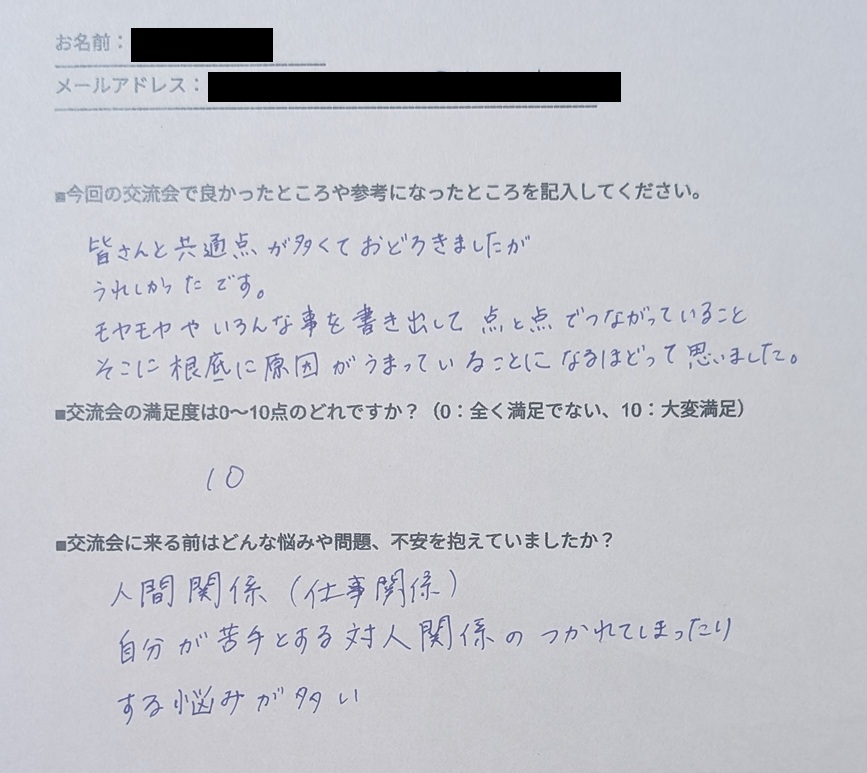 お名前：
メールアドレス：
■今回の交流会で良かったところや参考になったところを記入してください。
皆さんと共通点が多くておどろきましたが
うれしかったです。
モヤモヤやいろんな事を書き出して点と点でつながっていること
そこに根底に原因がうまっていることになるほどって思いました。
■交流会の満足度は0〜10点のどれですか？（0：全く満足でない、10：大変満足）
10
■交流会に来る前はどんな悩みや問題、不安を抱えていましたか？
人間関係（仕事関係）
自分が苦手とする対人関係のつかれてしまったり
する悩みが多い